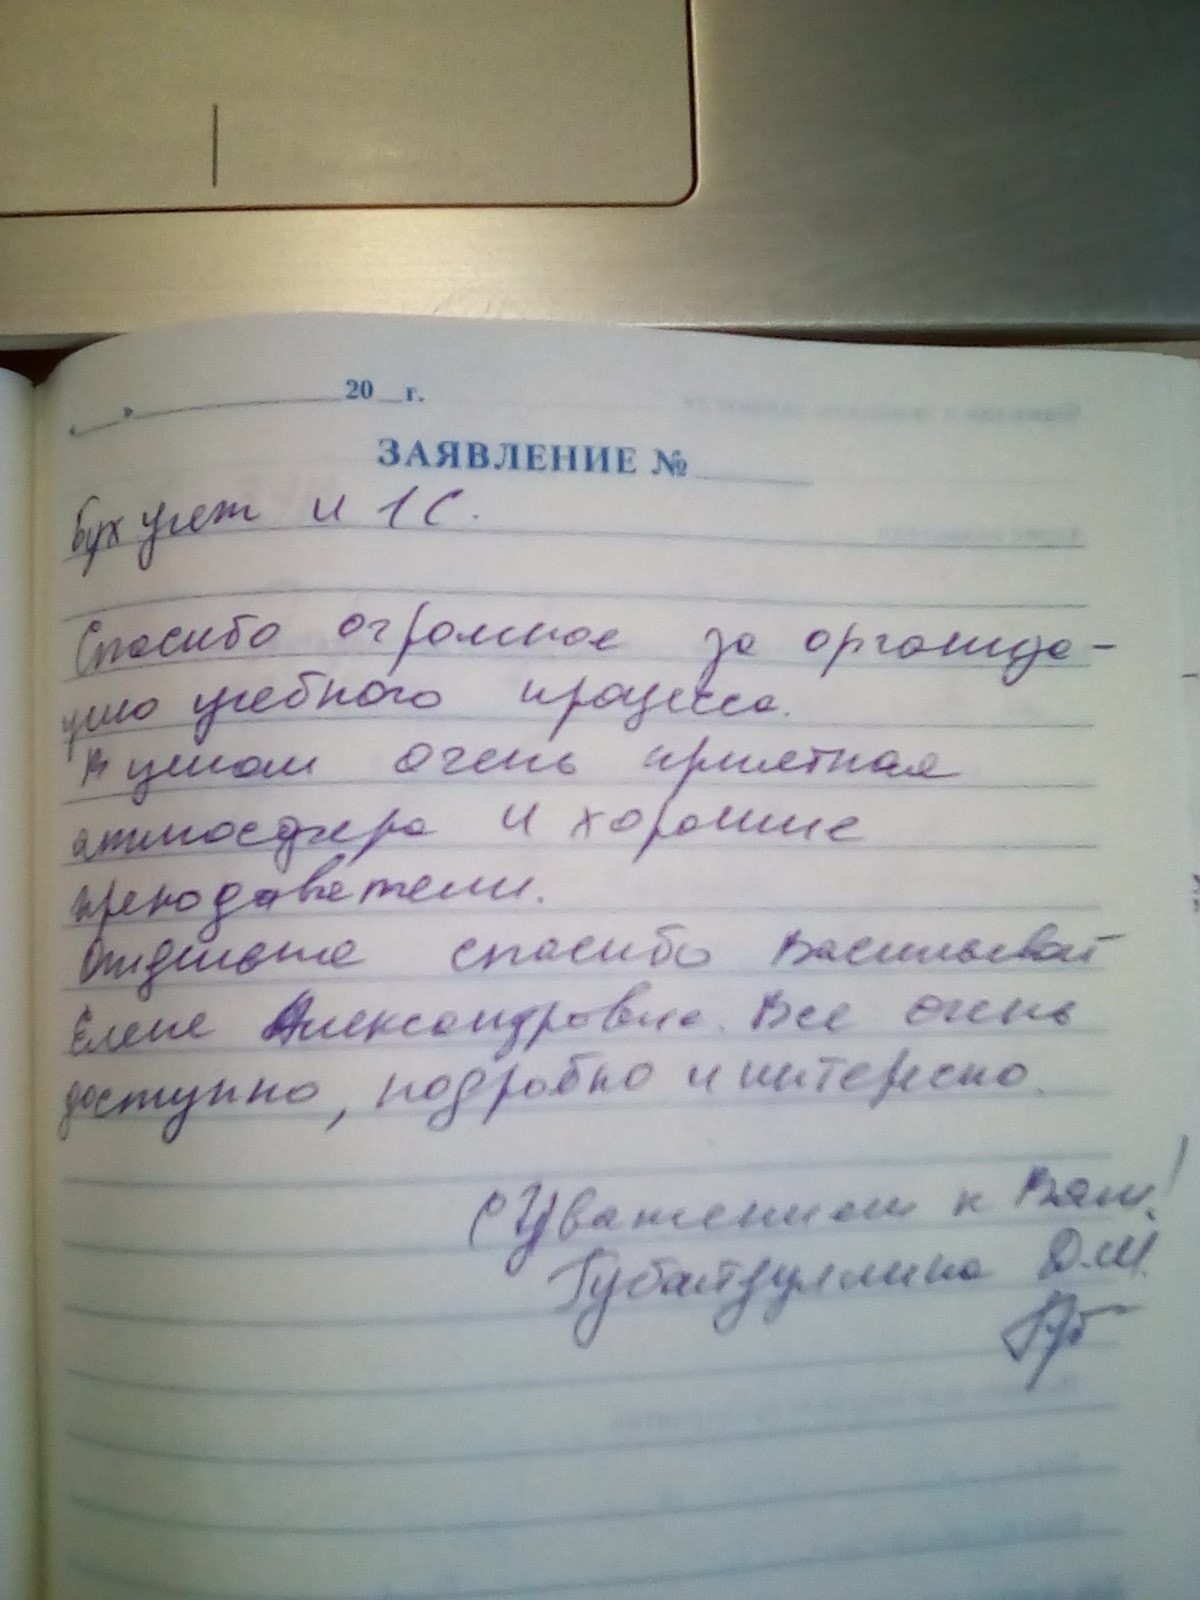 "___" ____________ 20__г.
ЗАЯВЛЕНИЕ № ______
Бух учет и 1С.
Спасибо огромное за организа-
цию учебного процесса.
В целом очень приятная
атмосфера и хорошие
преподаватели.
Отдельное спасибо Васильевой
Елене Александровне. Все очень
доступно, подробно и интересно.
С Уважением к Вам!
Губайдуллина Д.М.